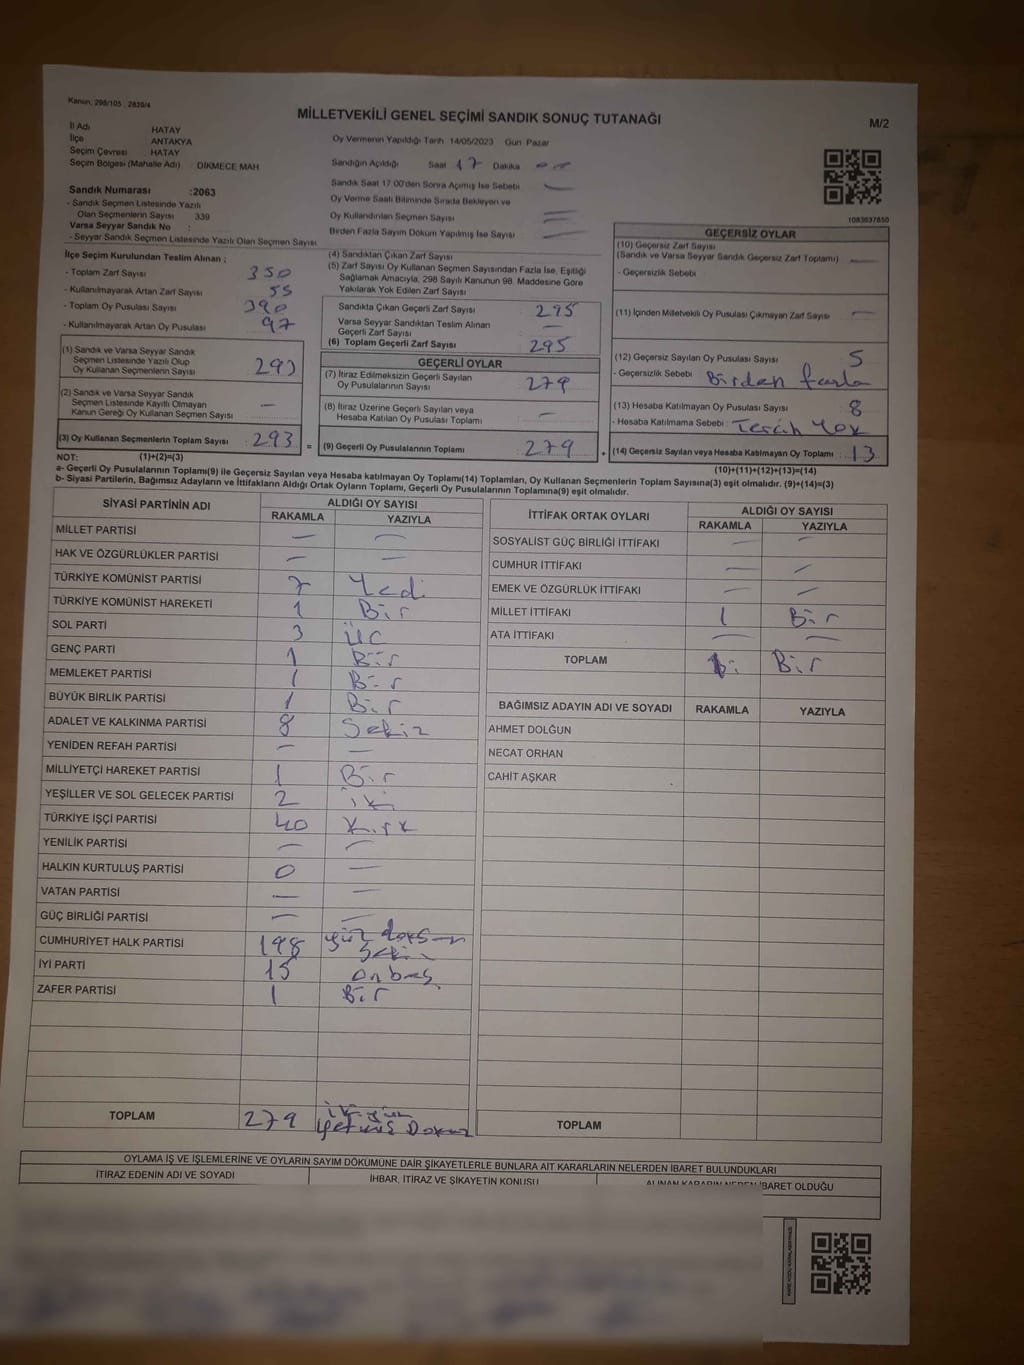 Kanun: 298/105 , 2839/4
MİLLETVEKİLİ GENEL SEÇİMİ SANDIK SONUÇ TUTANAĞI
M/2
İl Adı HATAY
İlçe ANTAKYA
Seçim Çevresi HATAY
Seçim Bölgesi (Mahalle Adı) : DİKMECE MAH
Sandık Numarası :2063
- Sandık Seçmen Listesinde Yazılı
Olan Seçmenlerin Sayısı 339
Varsa Seyyar Sandık No :
- Seyyar Sandık Seçmen Listesinde Yazılı Olan Seçmen Sayısı
Oy Vermenin Yapıldığı Tarih 14/05/2023 Gün Pazar
Sandığın Açıldığı Saat 17 Dakika
Sandık Saat 17:00'den Sonra Açılmış İse Sebebi —
Oy Verme Saati Bitiminde Sırada Bekleyen ve
Oy Kullandırılan Seçmen Sayısı —
Birden Fazla Sayım Döküm Yapılmış İse Sayısı —
1083037850
İlçe Seçim Kurulundan Teslim Alınan ;
- Toplam Zarf Sayısı 350
- Kullanılmayarak Artan Zarf Sayısı 55
- Toplam Oy Pusulası Sayısı 390
- Kullanılmayarak Artan Oy Pusulası 97
(1) Sandık ve Varsa Seyyar Sandık
Seçmen Listesinde Yazılı Olup
Oy Kullanan Seçmenlerin Sayısı : 293
(2) Sandık ve Varsa Seyyar Sandık
Seçmen Listesinde Kayıtlı Olmayan
Kanun Gereği Oy Kullanan Seçmen Sayısı : —
(3) Oy Kullanan Seçmenlerin Toplam Sayısı : 293
(1)+(2)=(3)
(4) Sandıktan Çıkan Zarf Sayısı
(5) Zarf Sayısı Oy Kullanan Seçmen Sayısından Fazla İse, Eşitliği
Sağlamak Amacıyla, 298 Sayılı Kanunun 98. Maddesine Göre
Yakılarak Yok Edilen Zarf Sayısı
Sandıkta Çıkan Geçerli Zarf Sayısı : 295
Varsa Seyyar Sandıktan Teslim Alınan
Geçerli Zarf Sayısı —
(6) Toplam Geçerli Zarf Sayısı : 295
GEÇERLİ OYLAR
(7) İtiraz Edilmeksizin Geçerli Sayılan
Oy Pusulalarının Sayısı : 279
(8) İtiraz Üzerine Geçerli Sayılan veya
Hesaba Katılan Oy Pusulası Toplamı : —
= (9) Geçerli Oy Pusulalarının Toplamı : 279
GEÇERSİZ OYLAR
(10) Geçersiz Zarf Sayısı
(Sandık ve Varsa Seyyar Sandık Geçersiz Zarf Toplamı) : —
- Geçersizlik Sebebi :
(11) İçinden Milletvekili Oy Pusulası Çıkmayan Zarf Sayısı : —
(12) Geçersiz Sayılan Oy Pusulası Sayısı : 5
- Geçersizlik Sebebi : Birden fazla
(13) Hesaba Katılmayan Oy Pusulası Sayısı : 8
- Hesaba Katılmama Sebebi : Tercih Yok
+ (14) Geçersiz Sayılan veya Hesaba Katılmayan Oy Toplamı : 13
(10)+(11)+(12)+(13)=(14)
NOT:
a- Geçerli Oy Pusulalarının Toplamı(9) ile Geçersiz Sayılan veya Hesaba katılmayan Oy Toplamı(14) Toplamları, Oy Kullanan Seçmenlerin Toplam Sayısına(3) eşit olmalıdır. (9)+(14)=(3)
b- Siyasi Partilerin, Bağımsız Adayların ve İttifakların Aldığı Ortak Oyların Toplamı, Geçerli Oy Pusulalarının Toplamına(9) eşit olmalıdır.
SİYASİ PARTİNİN ADI ALDIĞI OY SAYISI
RAKAMLA YAZIYLA
MİLLET PARTİSİ — —
HAK VE ÖZGÜRLÜKLER PARTİSİ — —
TÜRKİYE KOMÜNİST PARTİSİ 7 Yedi
TÜRKİYE KOMÜNİST HAREKETİ 1 Bir
SOL PARTİ 3 Üç
GENÇ PARTİ 1 Bir
MEMLEKET PARTİSİ 1 Bir
BÜYÜK BİRLİK PARTİSİ 1 Bir
ADALET VE KALKINMA PARTİSİ 8 Sekiz
YENİDEN REFAH PARTİSİ — —
MİLLİYETÇİ HAREKET PARTİSİ 1 Bir
YEŞİLLER VE SOL GELECEK PARTİSİ 2 iki
TÜRKİYE İŞÇİ PARTİSİ 40 Kırk
YENİLİK PARTİSİ — —
HALKIN KURTULUŞ PARTİSİ 0 —
VATAN PARTİSİ — —
GÜÇ BİRLİĞİ PARTİSİ — —
CUMHURİYET HALK PARTİSİ 198 yüz doksan
sekiz
İYİ PARTİ 15 onbeş
ZAFER PARTİSİ 1 Bir
TOPLAM 279 İkiyüz
Yetmiş Dokuz
İTTİFAK ORTAK OYLARI ALDIĞI OY SAYISI
RAKAMLA YAZIYLA
SOSYALİST GÜÇ BİRLİĞİ İTTİFAKI — —
CUMHUR İTTİFAKI — —
EMEK VE ÖZGÜRLÜK İTTİFAKI — —
MİLLET İTTİFAKI 1 Bir
ATA İTTİFAKI — —
TOPLAM Bir
BAĞIMSIZ ADAYIN ADI VE SOYADI RAKAMLA YAZIYLA
AHMET DOLĞUN
NECAT ORHAN
CAHİT AŞKAR
TOPLAM
OYLAMA İŞ VE İŞLEMLERİNE VE OYLARIN SAYIM DÖKÜMÜNE DAİR ŞİKAYETLERLE BUNLARA AİT KARARLARIN NELERDEN İBARET BULUNDUKLARI
İTİRAZ EDENİN ADI VE SOYADI İHBAR, İTİRAZ VE ŞİKAYETİN KONUSU ALINAN KARARIN NEDEN İBARET OLDUĞU